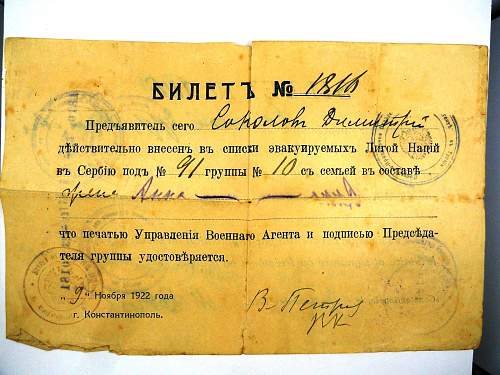 БИЛЕТЪ № 1316
Предъявитель сего Соколовъ Димитрій
дѣйствительно внесен въ списки эвакуируемыхъ Лигой Націй
въ Сербію подъ № 91 группы № 10 съ семьей въ составѣ
жена Анна
что печатью Управденія Военнаго Агента и подписью Предсѣда-
теля группы удостовѣряется.
„9" Ноября 1922 года
г. Константинополь.